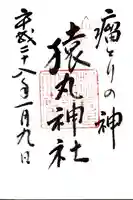 瘤とりの神
猿丸神社
平成二十八年一月九日